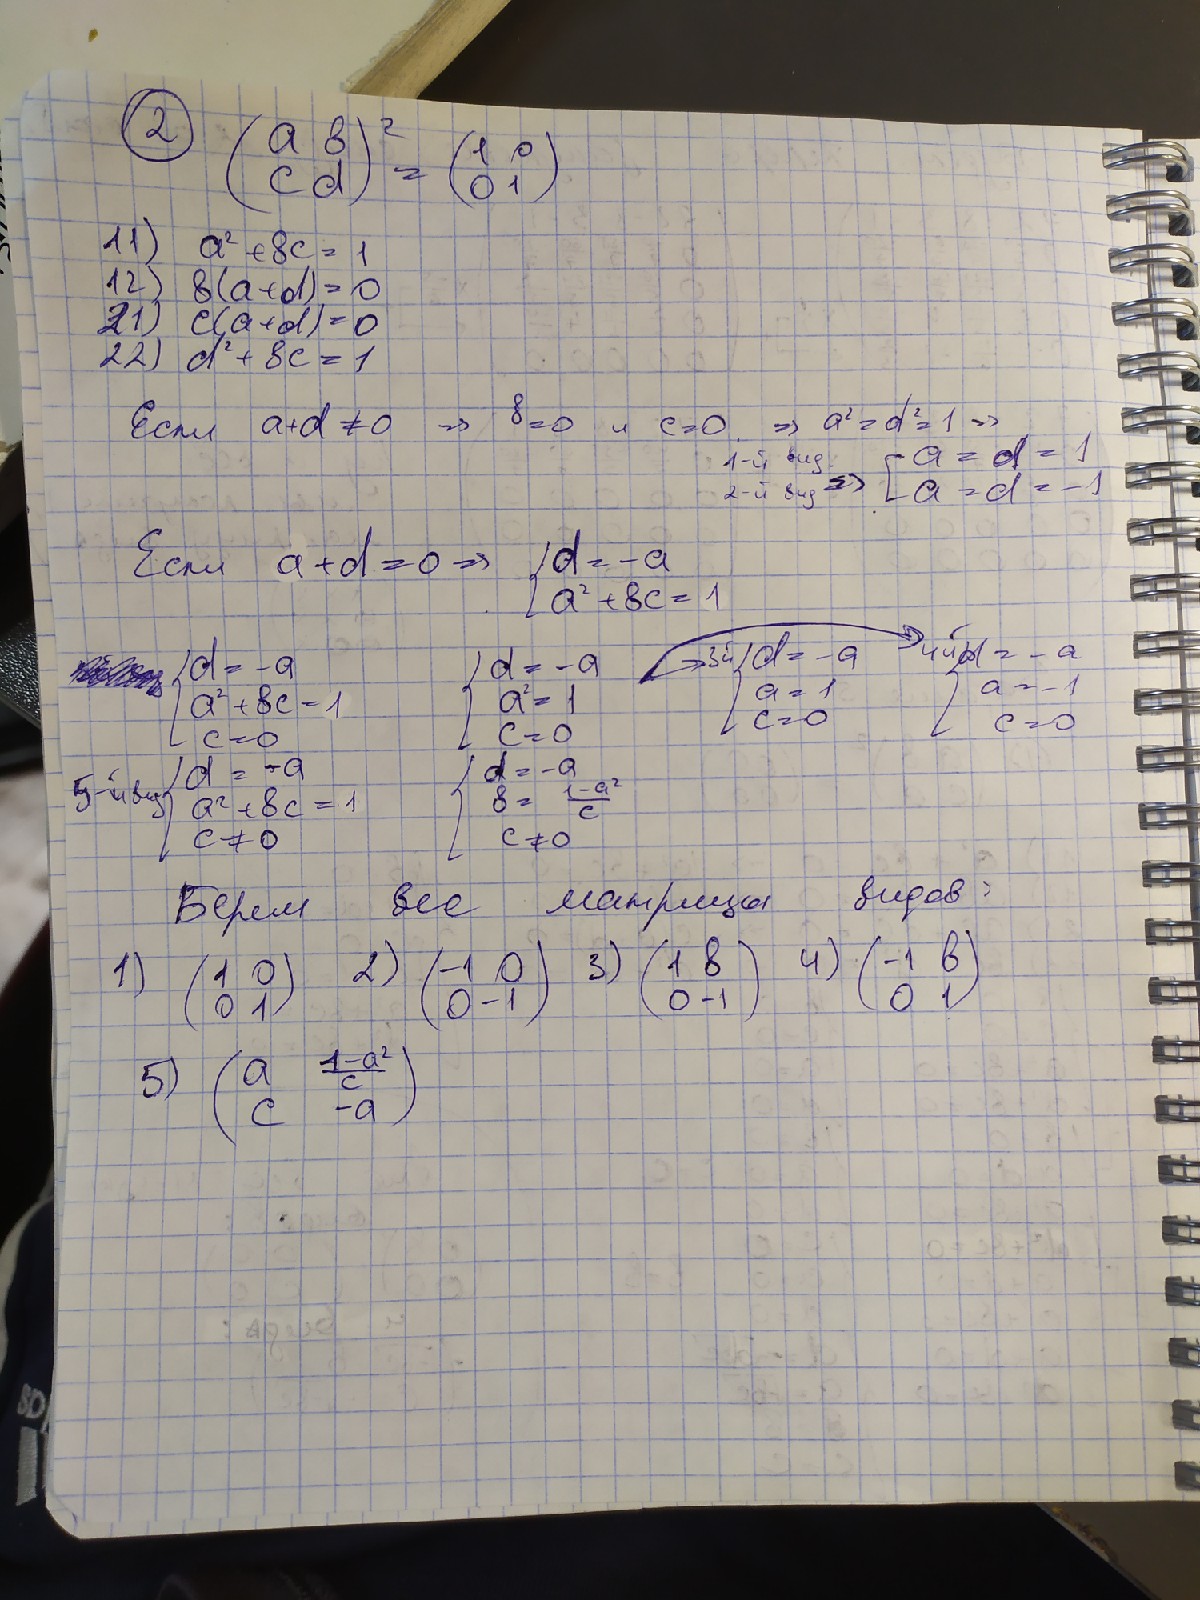 2 (a b; c d)² = (1 0; 0 1)
11) a² + bc = 1
12) b(a+d) = 0
21) c(a+d) = 0
22) d² + bc = 1
Если a+d ≠ 0 => b=0 и c=0 => a²=d²=1 =>
1-й вид [ a = d = 1
2-й вид => [ a = d = -1
Если a+d=0 => { d = -a
a² + bc = 1
{ d = -a { d = -a → 3й { d = -a 4й { d = -a
a² + bc = 1 a² = 1 a = 1 a = -1
c = 0 c = 0 c = 0 c = 0
5-й вид { d = -a { d = -a
a² + bc = 1 b = (1-a²)/c
c ≠ 0 c ≠ 0
Берем все матрицы видов:
1) (1 0; 0 1) 2) (-1 0; 0 -1) 3) (1 b; 0 -1) 4) (-1 b; 0 1)
5) (a (1-a²)/c; c -a)
SD